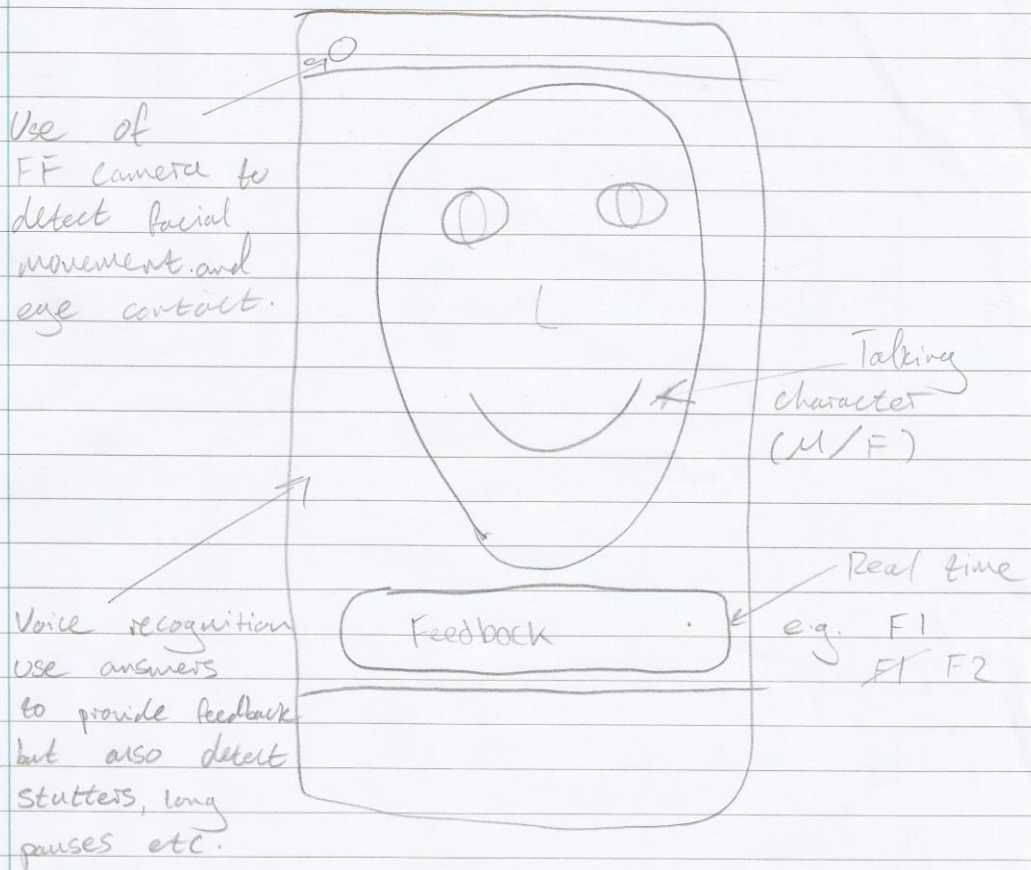 Use of
FF camera to
detect facial
movement.and
eye contact.
Talking
character
(M/F)
Real time
e.g. F1
F1 F2
Feedback
Voice recognition
use answers
to provide feedback
but also detect
stutters, long
pauses etc.